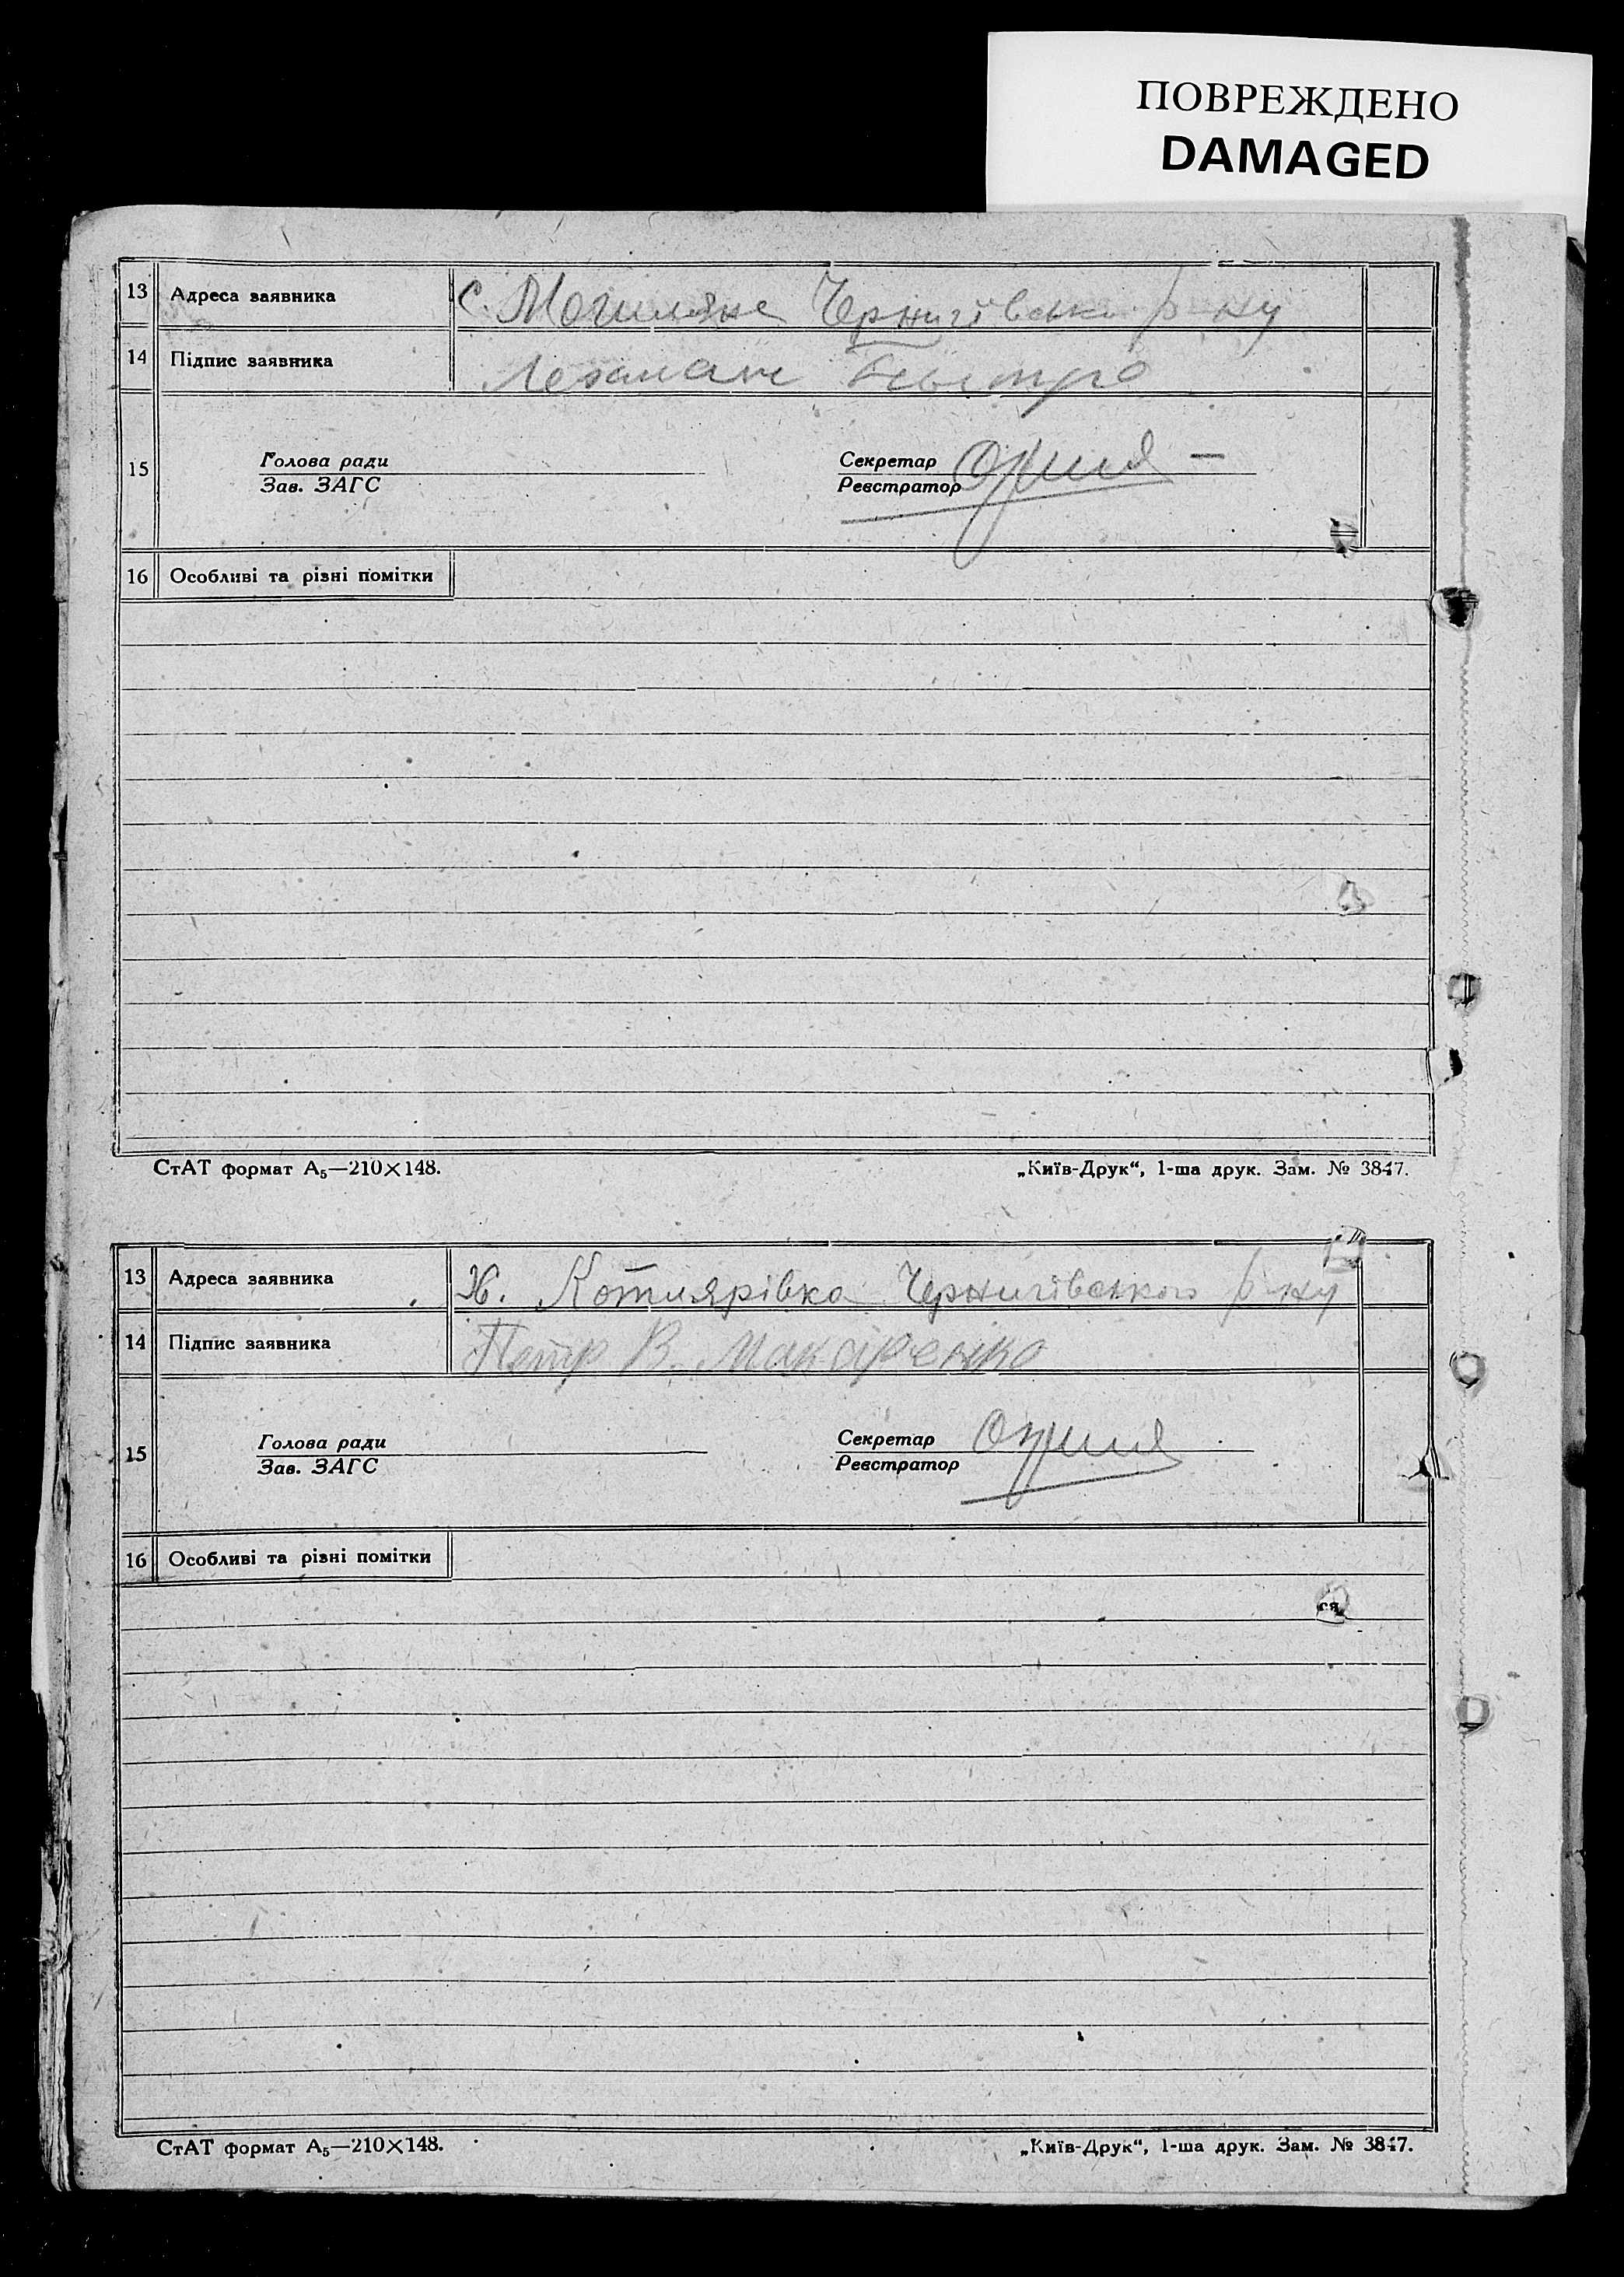 ПОВРЕЖДЕНО
DAMAGED
13 Адреса заявника с. Могиляне Чернигівськ р-ну
14 Підпис заявника
15 Голова ради Секретар
Зав. ЗАГС Реєстратор
16 Особливі та різні помітки
СтАТ формат А₅—210×148. „Київ-Друк“, 1-ша друк. Зам. № 3847.
13 Адреса заявника Х. Котлярівка Чернигівського р-ну
14 Підпис заявника Петр В. Макаренко
15 Голова ради Секретар
Зав. ЗАГС Реєстратор
16 Особливі та різні помітки
ся
СтАТ формат А₅—210×148. „Київ-Друк“, 1-ша друк. Зам. № 3847.